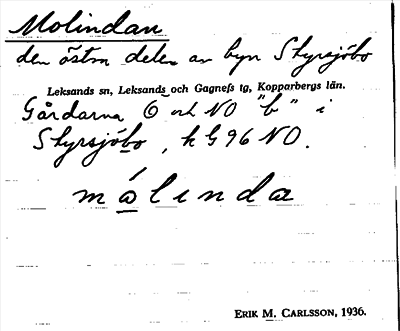 Molindan
den östra delen av byn Styrsjöbo
Leksands sn, Leksands och Gagnefs tg, Kopparbergs län.
Gårdarna O och NO "b" i
Styrsjöbo, k G 96 NO.
mȯlinda
ERIK M. CARLSSON, 1936.